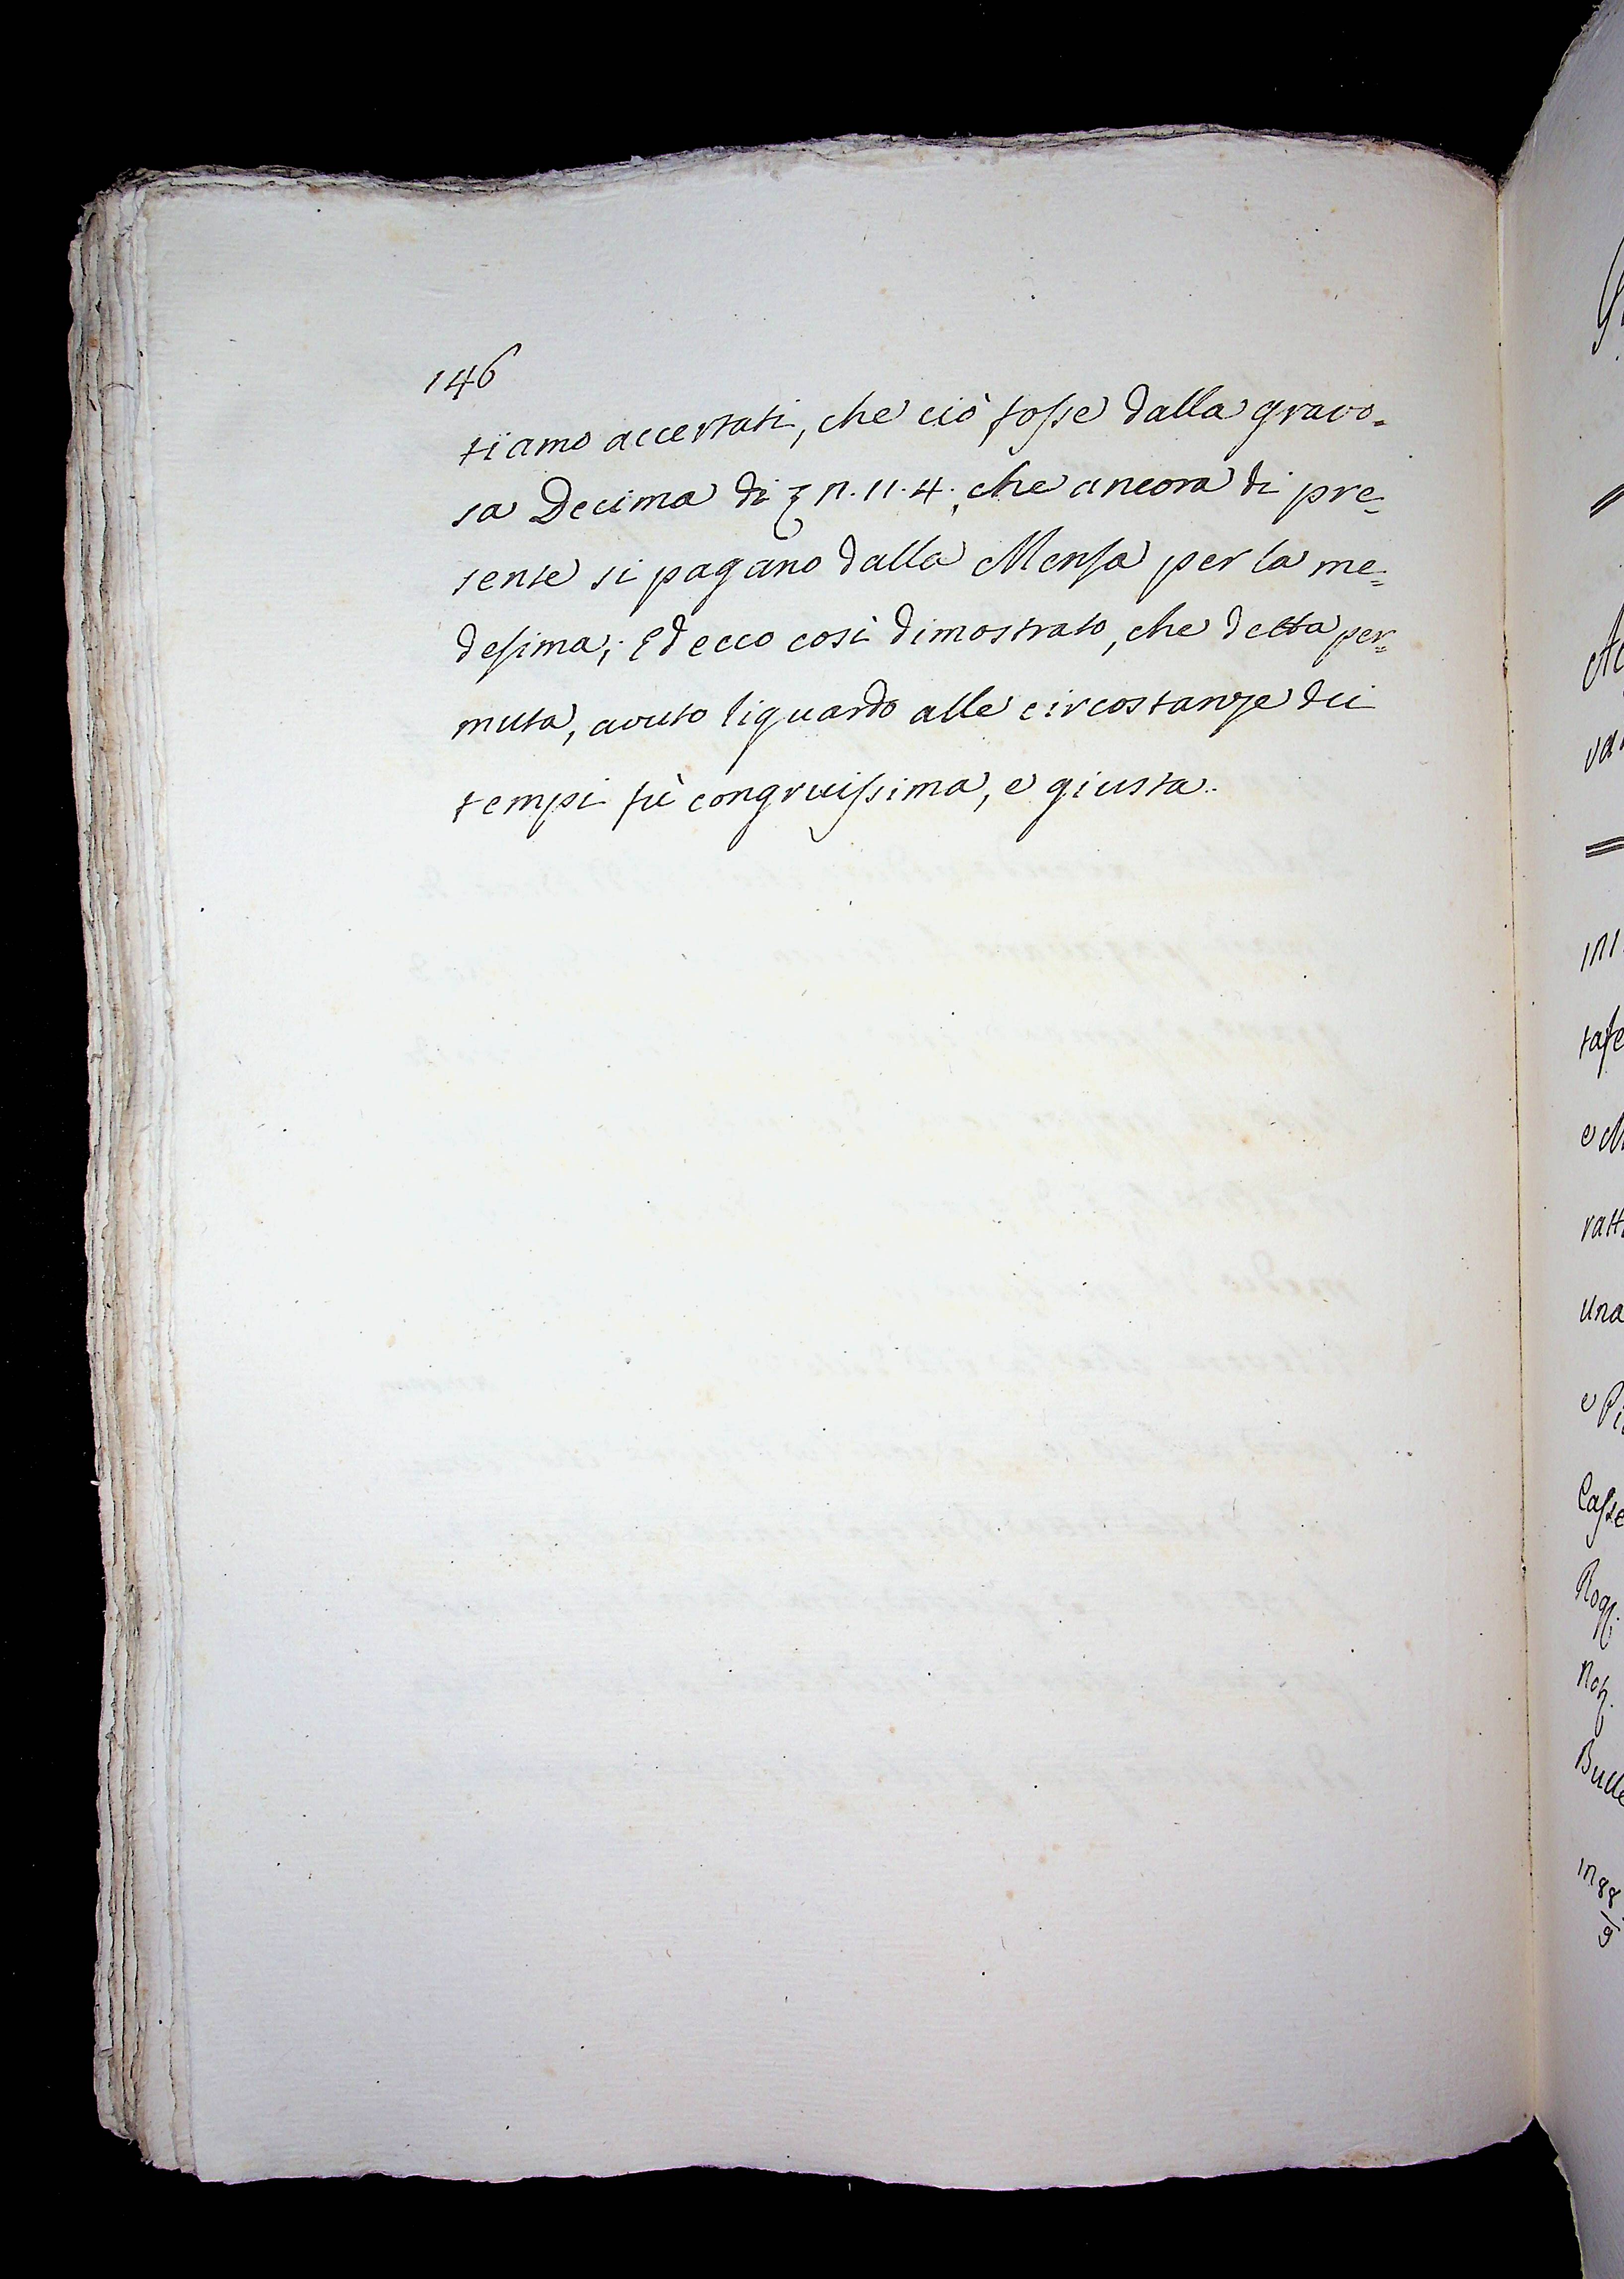 146
siamo accertati, che ciò fosse dalla gravo-
sa Decima di ꝣ 17. 11. 4. che ancora di pre=
sente si pagano dalla Mensa per la me=
desima; Ed ecco così dimostrato, che detta per=
muta, avuto riguardo alle circostanze dei
tempi fù congruissima, e giusta.
una